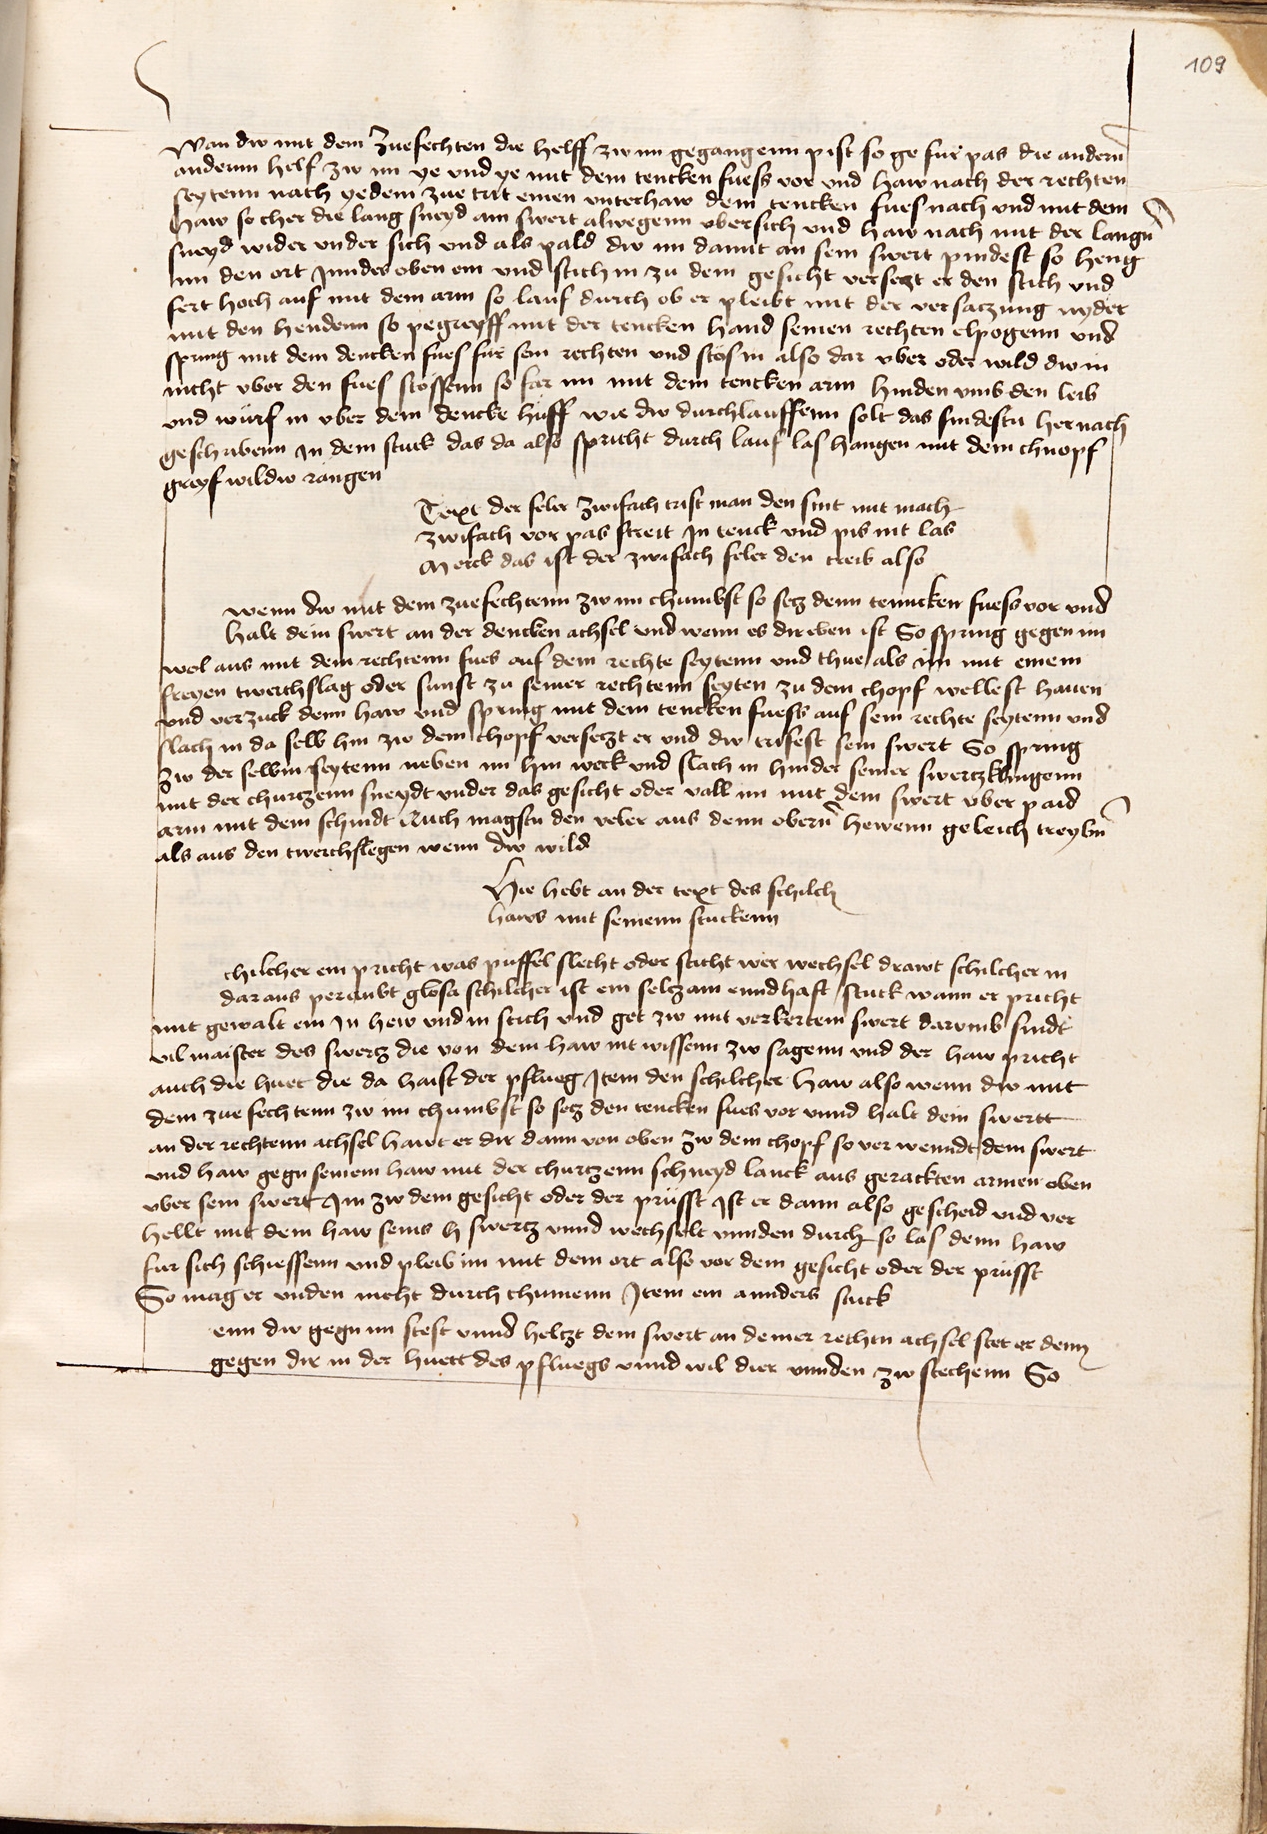 109
Wan dw mit dem Zuefechten die helff zw im gegangenn pist so ge fur pas die andern
andernn helf zw im ye vnd ye mit dem tencken fuess vor vnd haw nach der rechten
seytenn nach yedem zue trit einen vnterhaw dem tencken fues nach vnd mit dem
haw so cher die lang sneyd am swert alwegenn vbersich vnd haw nach mit der langn
sneyd wider vnder sich vnd als pald dw im damit an sein swert pindest so heng
im den ort Inndes oben ein vnd stich in zu dem gesicht versetzt er den stich vnd
fert hoch auf mit dem arm so lauf durch ob er pleibt mit der versatzung nyder
mit den hendenn so pegreyff mit der tencken hand seinen rechten elpogenn vnd
spring mit dem dencken fues fur sein rechten vnd stos in also dar vber oder wild dw in
nicht vber den fues stossenn so far im mit dem tencken arm hinden vmb den leib
vnd würf in vber dein dencke hüff wie dw durchlauffenn solt das findestu her nach
geschribenn In dem stuck das da also spricht durch lauf las hangen mit dem chnopf
greyf wildw rangen
Text der feler zwifach trift man den snit mit mach
zwifach vor pas streit In tenck vnd pis nit las
Merck das ist der zwifach feler den treib also
wenn dw mit dem zuefechtenn zw im chumbst so secz denn tenncken fuess vor vnd
halt dein swert an der dencken achsel vnd wenn es dir eben ist So spring gegen im
wol aus mit dem rechtenn fues auf dein rechte seytenn vnd thue als im mit einem
freyen twerchslag oder sunst zu seiner rechtenn seyten zu dem chopf wellest hauen
vnd verzuck denn haw vnd spring mit dem tencken fuess auf sein rechte seytenn vnd
slach in da selb hin zw dem chopf versetzt er vnd dw trifest sein swert So spring
zw der selbin seytenn neben im hin weck vnd slach in hinder seiner swertzklingenn
mit der churtzenn sneydt vnder das gesicht oder vall im mit dem swert vber paid
arm mit dem schnidt Auch magstu den veler aus denn obern hewenn geleich treybn
als aus den twerchslegen wenn dw wild
Hie hebt an der text des schilch
haws mit seinenn stuckenn
chilcher ein pricht was püffel slecht oder sticht wer wechsel drawt schilcher in
daraus peraubt glosa schilcher ist ein selczam enndhaft stuck wann er pricht
mit gewalt ein In hew vnd in stich vnd get zw mit verkertem swert darumb sindt
vil maister des swertz die von dem haw nit wissenn zw sagenn vnd der haw pricht
auch die huet die da haist der pflueg Item den schilcher haw also wenn dw mit
dem zue fechtenn zw im chumbst so secz den tencken fues vor vnnd halt dein swertt
an der rechtenn achsel hawt er dir dann von oben zw dem chopf so ver wenndt dein swert
vnd haw gegn seinem haw mit der churtzenn schneyd lanck aus gerackten armen oben
vber sein swert Im zw dem gesicht oder der prüsst Ist er dann also gescheid vnd ver
hellt mit dem haw seins h swertz vnnd wechselt vnnden durch so las denn haw
fur sich schiessenn vnd pleib im mit dem ort also vor dem gesicht oder der prüsst
So mag er vnden nicht durch chumenn Item ein annders stuck
enn dw gegn im stest vnnd heltzt dein swert an deiner rechtn achsel stet er denn
gegen dir in der huett des pfluegs vnnd wil dier vnnden zw stechenn So